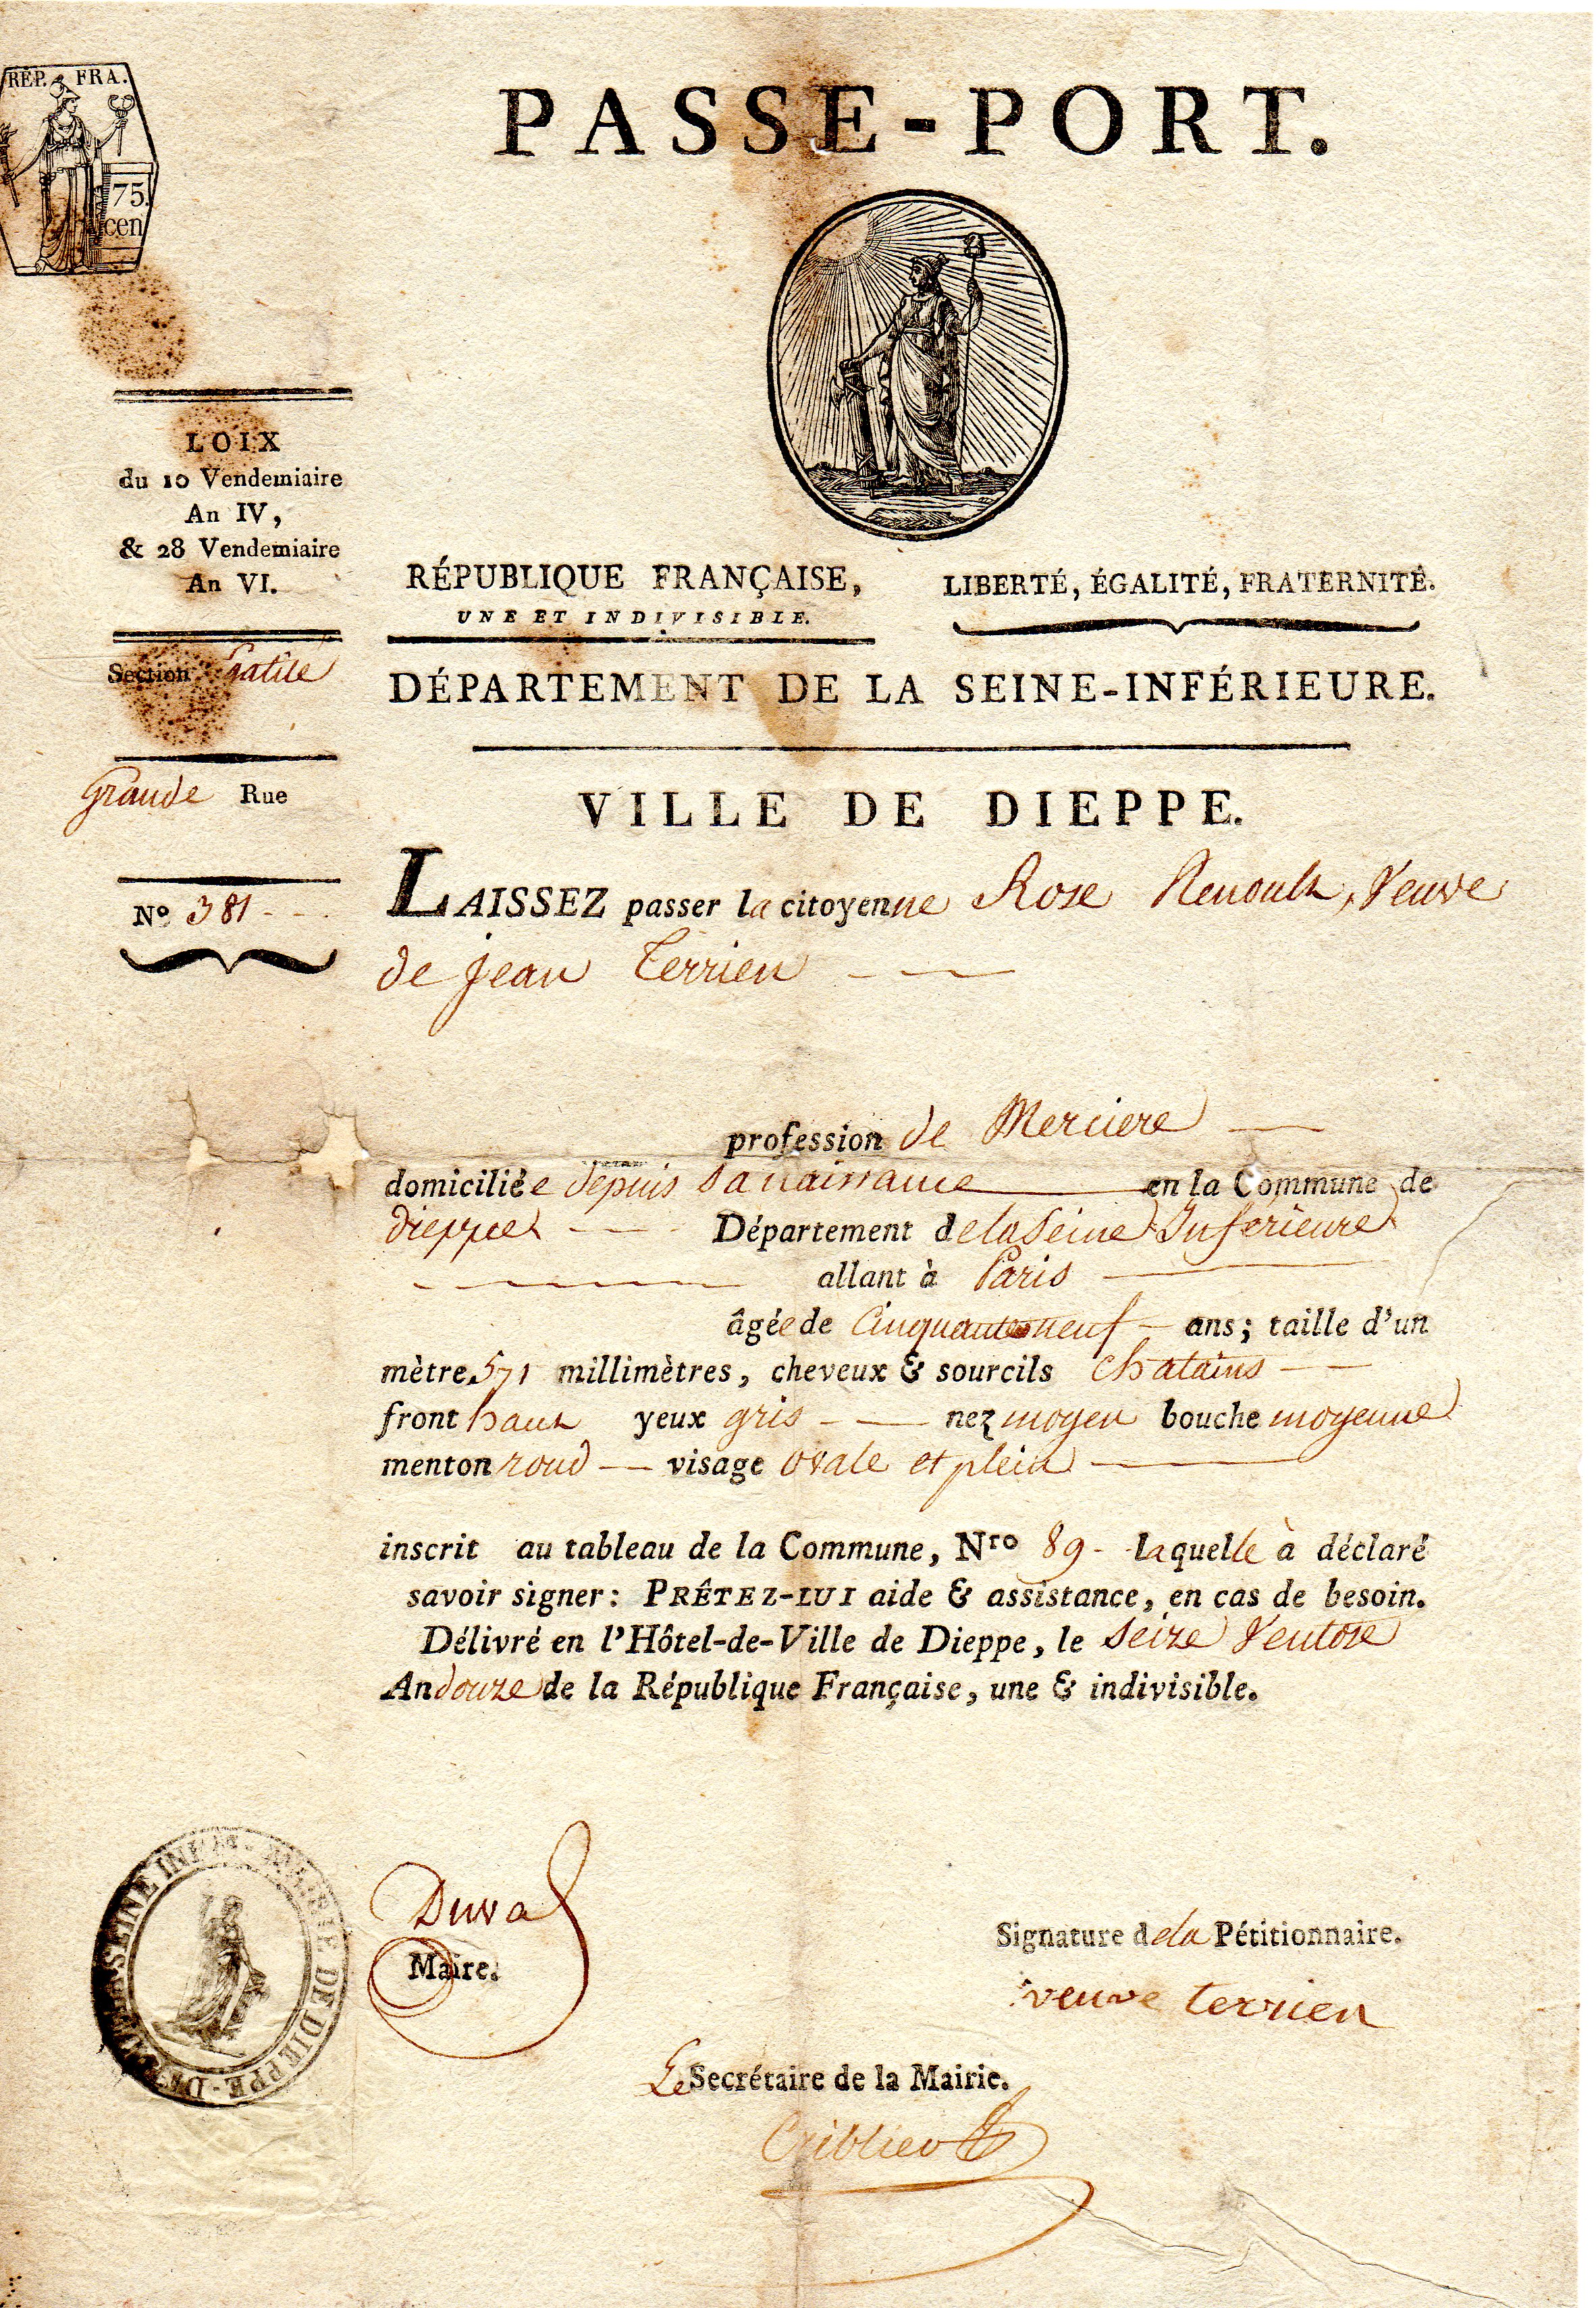 RÉP. FRA.
75.
cen
PASSE-PORT.
LOIX
du 10 Vendemiaire
An IV,
& 28 Vendemiaire
An VI.
Section Egalité
Grande Rue
Nº 381
RÉPUBLIQUE FRANÇAISE,
UNE ET INDIVISIBLE.
LIBERTÉ, ÉGALITÉ, FRATERNITÉ.
DÉPARTEMENT DE LA SEINE-INFÉRIEURE.
VILLE DE DIEPPE.
LAISSEZ passer la citoyenne Rose Renoult, Veuve
de Jean Terrien
profession de Merciere
domiciliée depuis sa naissance en la Commune de
dieppe Département de la Seine Inferieure
allant à Paris
âgée de Cinquante neuf ans; taille d'un
mètre 571 millimètres, cheveux & sourcils Chatains
front haut yeux gris nez moyen bouche moyenne
menton rond visage ovale et plein
inscrit au tableau de la Commune, Nro 89 laquelle à déclaré
savoir signer: PRÊTEZ-LUI aide & assistance, en cas de besoin.
Délivré en l'Hôtel-de-Ville de Dieppe, le Seize Ventose
An douze de la République Française, une & indivisible.
SEINE INFRE. MAIRIE DE DIEPPE
Duval
Maire.
Signature de la Pétitionnaire.
veuve terrien
Le Secrétaire de la Mairie.